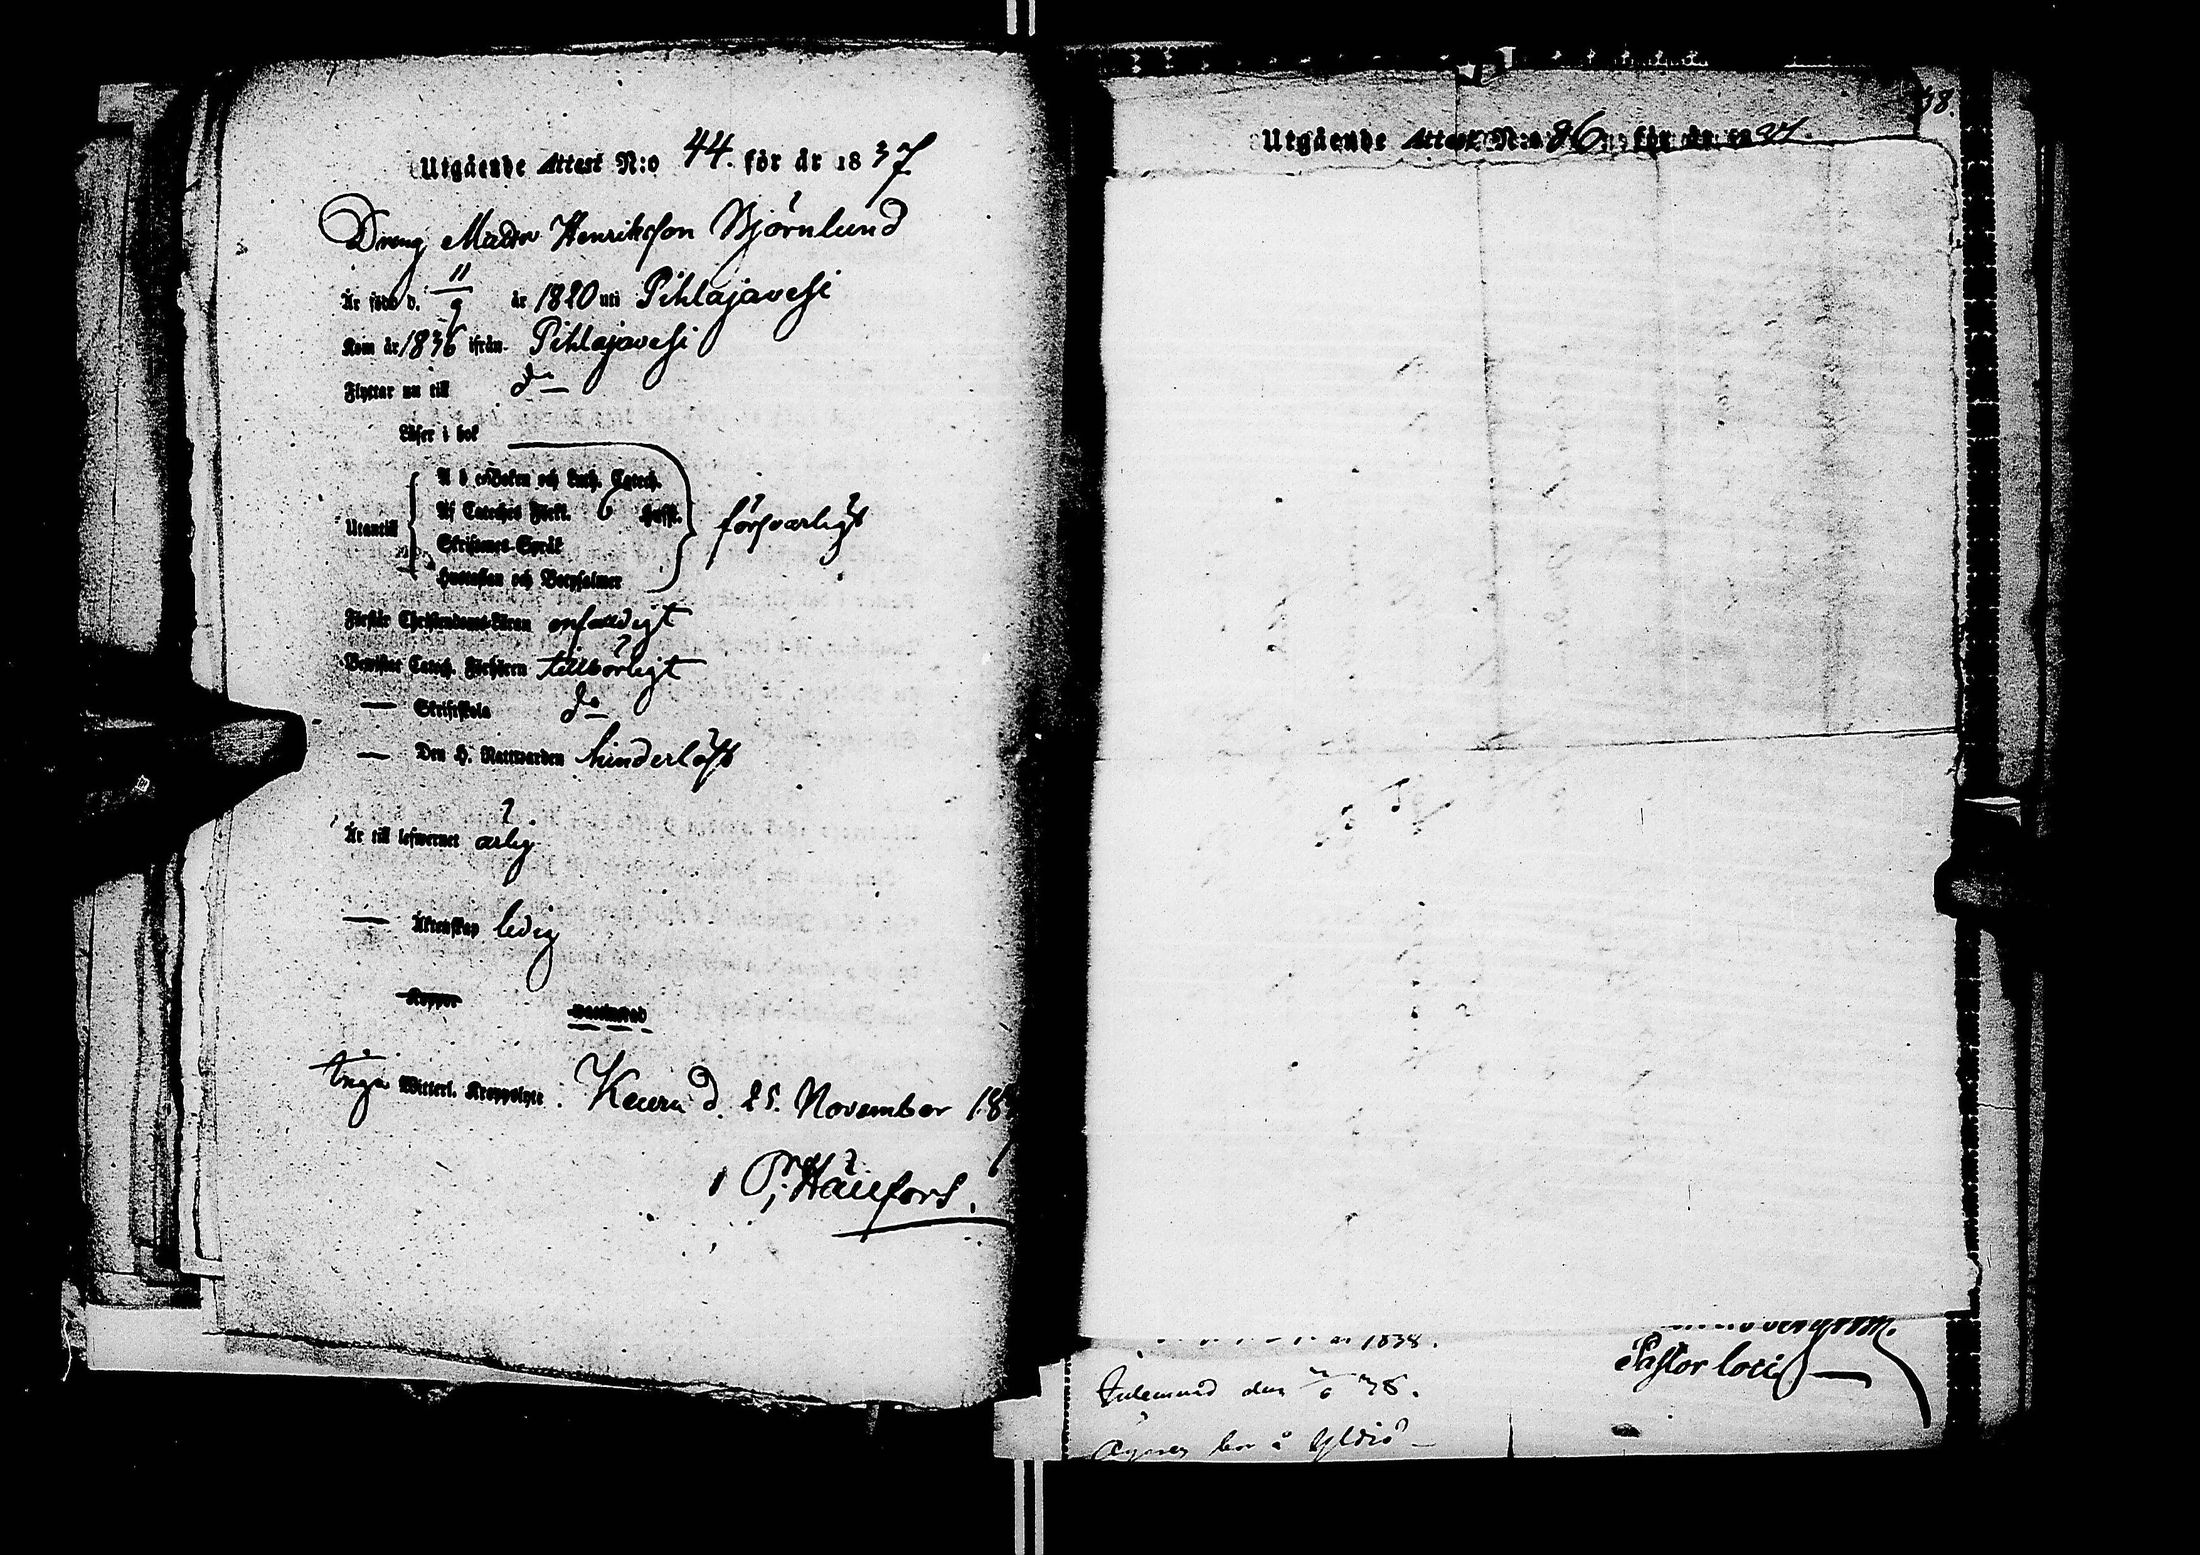 Utgående Attest N:o 44. för år 1837
Dreng Matts Henriksson Björnlund
Är född d. 11/9 år 1820 uti Pihlajavesi
Kom år 1836 ifrån Pihlajavesi
Flyttar nu till do
Läser i bok
A b c-Boken och Luth. Catech.
Utantill Af Cateches Förkl. 6 Hufst. försvarligt
Skriftenes-Språk
Hustaflan och Botpsalmer
Förstår Christendoms-Läran enfaldigt
Bevistar Catech. Förhören tillbörligt
— Skriftskola do
— Den H. Nattwarden hinderlöst
Är till lefwernet ärlig
— Äktenskap ledig
Koppor
vaccinerad
Inga Witterl. Kroppslyte. Keuru d. 25. November 18
P. Hällfors.
38.
Utgående Attest N:o 86 för år 1837.
1838.
Inlemnad den 6 38.
Pastor loci
bor å Yldiö